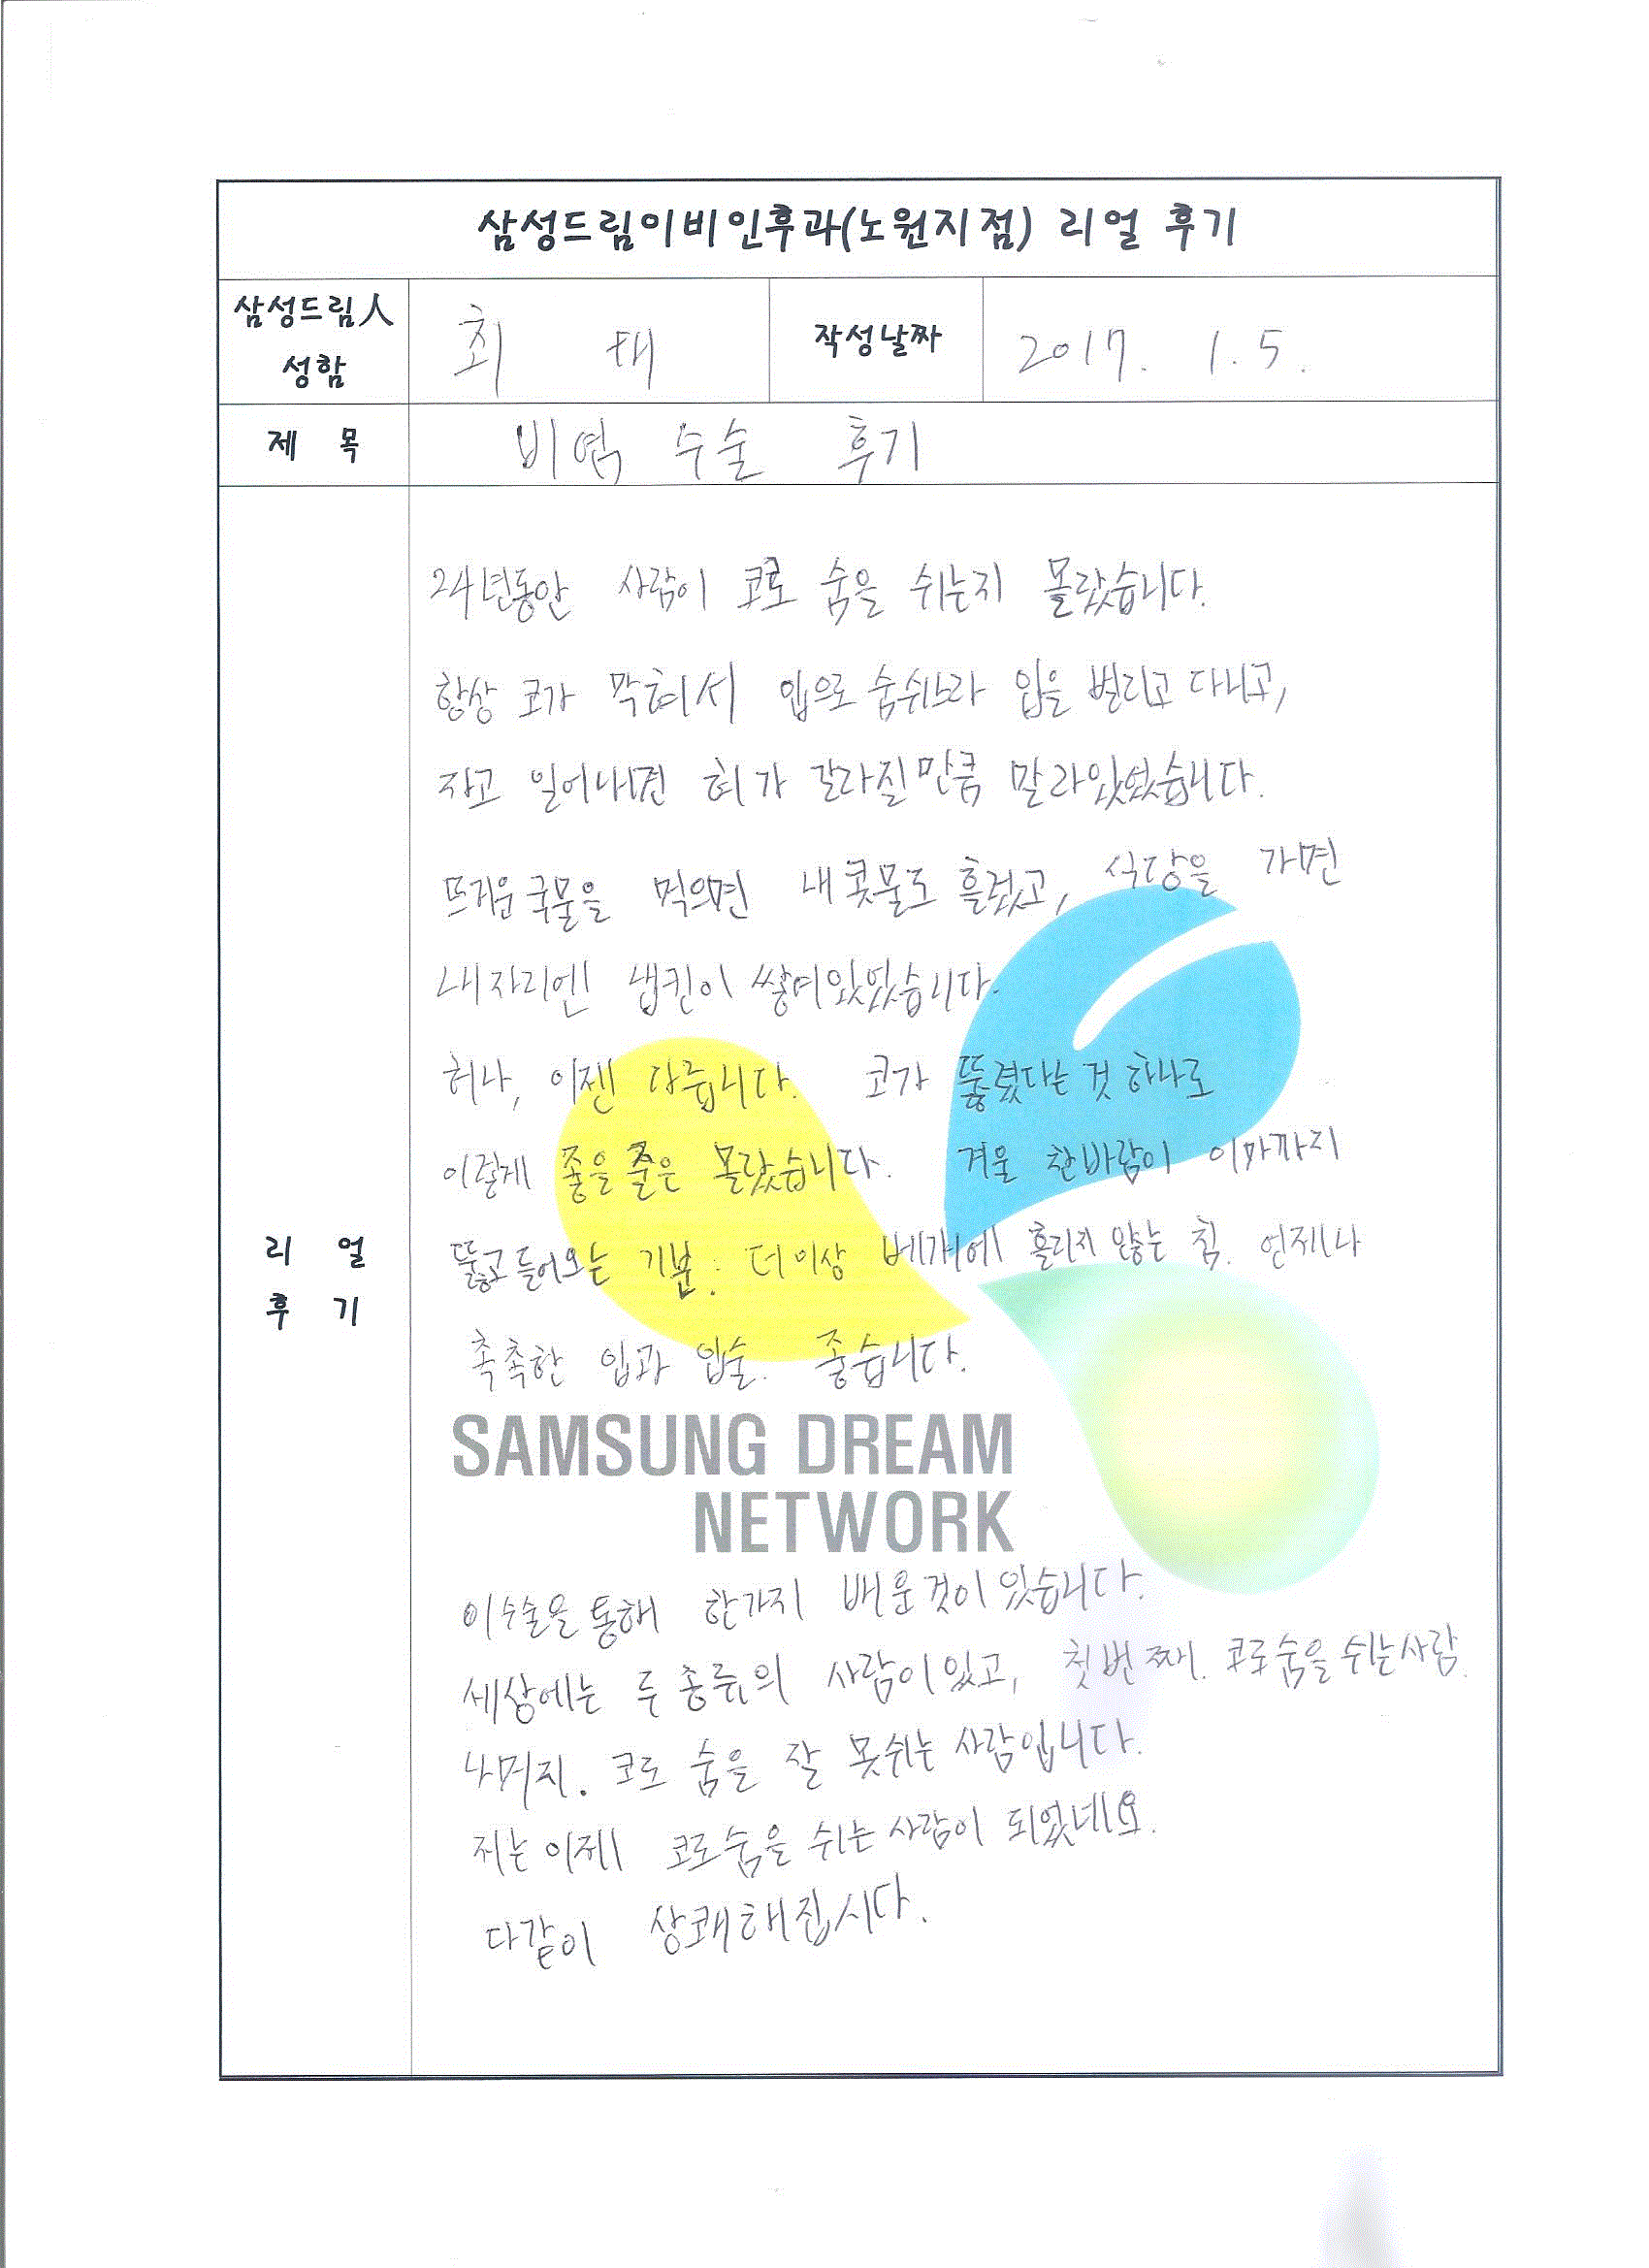 삼성드림이비인후과(노원지점) 리얼 후기
삼성드림人 성함
최 태
작성날짜
2017. 1. 5.
제 목
비염 수술 후기
리 얼 후 기
24년동안 사람이 코로 숨을 쉬는지 몰랐습니다.
항상 코가 막혀서 입으로 숨쉬느라 입을 벌리고 다니고,
자고 일어나면 혀가 갈라질만큼 말라있었습니다.
뜨거운 국물을 먹으면 내 콧물도 흘렀고, 식당을 가면
내 자리엔 냅킨이 쌓여있었습니다.
허나, 이젠 다릅니다. 코가 뚫렸다는 것 하나로
이렇게 좋을 줄은 몰랐습니다. 겨울 찬바람이 이마까지
뚫고 들어오는 기분. 더이상 베개에 흘리지 않는 침. 언제나
촉촉한 입과 입술. 좋습니다.
SAMSUNG DREAM
NETWORK
이수술을 통해 한가지 배운것이 있습니다.
세상에는 두 종류의 사람이 있고, 첫번째. 코로 숨을 쉬는 사람.
나머지. 코로 숨을 잘 못쉬는 사람입니다.
저는 이제 코로 숨을 쉬는 사람이 되었네요.
다같이 상쾌해집시다.